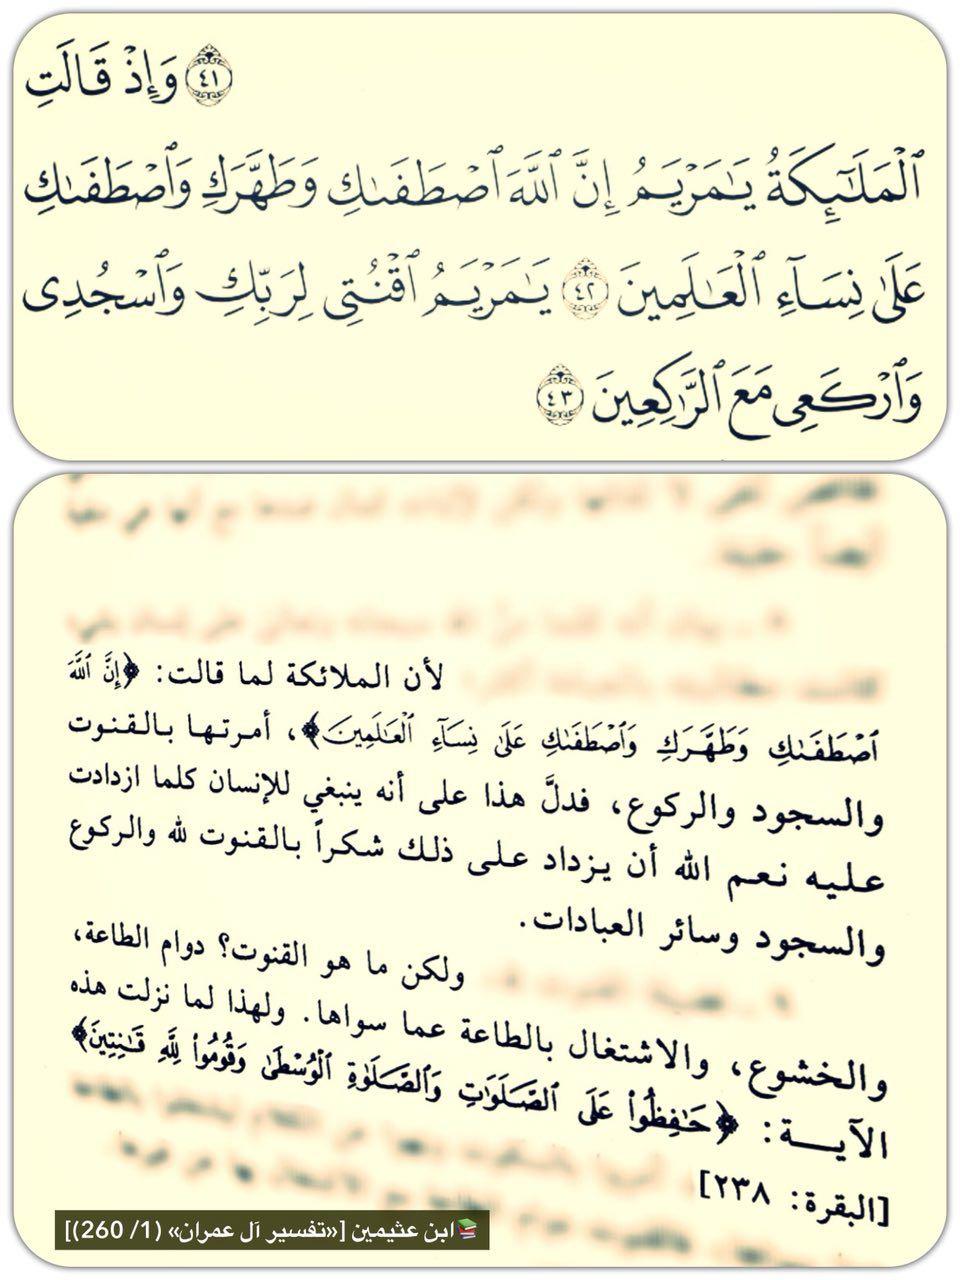 ﴿٤١﴾ وَإِذۡ قَالَتِ
ٱلۡمَلَٰٓئِكَةُ يَٰمَرۡيَمُ إِنَّ ٱللَّهَ ٱصۡطَفَىٰكِ وَطَهَّرَكِ وَٱصۡطَفَىٰكِ
عَلَىٰ نِسَآءِ ٱلۡعَٰلَمِينَ ﴿٤٢﴾ يَٰمَرۡيَمُ ٱقۡنُتِي لِرَبِّكِ وَٱسۡجُدِي
وَٱرۡكَعِي مَعَ ٱلرَّٰكِعِينَ ﴿٤٣﴾
لأن الملائكة لما قالت: ﴿إِنَّ ٱللَّهَ
ٱصۡطَفَىٰكِ وَطَهَّرَكِ وَٱصۡطَفَىٰكِ عَلَىٰ نِسَآءِ ٱلۡعَٰلَمِينَ﴾، أمرتها بالقنوت
والسجود والركوع، فدلَّ هذا على أنه ينبغي للإنسان كلما ازدادت
عليه نعم الله أن يزداد على ذلك شكراً بالقنوت لله والركوع
والسجود وسائر العبادات.
ولكن ما هو القنوت؟ دوام الطاعة،
والخشوع، والاشتغال بالطاعة عما سواها. ولهذا لما نزلت هذه
الآية: ﴿حَٰفِظُواْ عَلَى ٱلصَّلَوَٰتِ وَٱلصَّلَوٰةِ ٱلۡوُسۡطَىٰ وَقُومُواْ لِلَّهِ قَٰنِتِينَ﴾
[البقرة: ٢٣٨]
📚ابن عثيمين [«تفسير آل عمران» (1/ 260)]